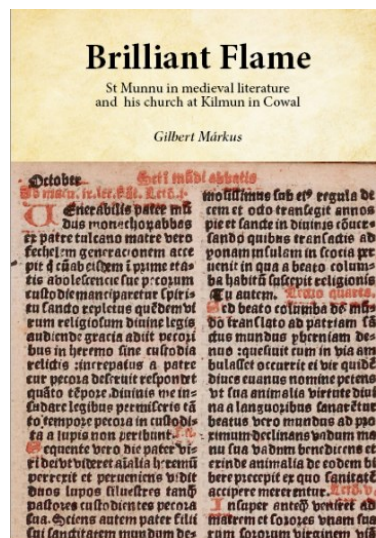 Brilliant Flame
St Munnu in medieval literature
and his church at Kilmun in Cowal
Gilbert Márkus
October
Scti mūdi abbatis
Enerabilis pater mū
dus monachoꝝ abbas
ex patre tulcano matre vero
fechelem generacionem acce
pit
etatis adolescencie sue pecorum
custodie manciparetur spiri
tu sancto repletus quēdem vi
rum religiosum divine legis
audiende gracia adiit pecori
bus in heremo sine custodia
relictis increpatus a patre
cur pecora deseruit respondit
quāto tēpore divinis me in
sudare legibus permiseris tā
to tempore pecora in custodi
ta a lupis non peribunt
Sequente vero die pater vi
perrexit et perueniens vidit
duos lupos siluestres tanq̄
pastores custodientes pecora
sua. Sciens autem pater filii
sui sanctitatem mundum de
molliimus sub eiꝰ regula de
cem et octo transegit annos
pie et sancte in divinis
sando quibus transactis ad
ponam insulam in scocia per
uenit in qua a beato colum
ba habitū suscepit religionis
Tu autem. Lectio quarta.
Sed beato columba de mū
do translato ad patriam sā
ctus mundus yberniam de
nuo
bulasset occurrit ei vir quidē
dives euanus nomine petens
vt sua animalia virtute divi
na a languoribus sanarētur
beatus vero mundus ad pro
ximum declinans vadum ma
nu sua vadum benedicens et
exinde animalia de eodem bi
bere precepit ex quo sanitatē
accipere mererentur.
Insuper
matrem et sorores suam
rum sororum virginem